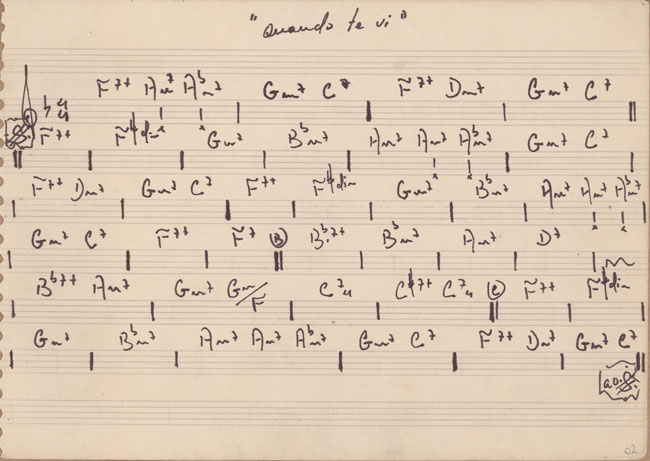 "Quando te vi"
F7+ Am7 Abm7 Gm7 C7 F7+ Dm7 Gm7 C7
F7+ F#dim Gm7 Bbm7 Am7 Am7 Abm7 Gm7 C7
F7+ Dm7 Gm7 C7 F7+ F#dim Gm7 Bbm7 Am7 Am7 Abm7
Gm7 C7 F7+ F7 B Bb7+ Bbm7 Am7 D7
Bb7+ Am7 Gm7 Gm/F C74 C#7+ C74 C F7+ F#dim
Gm7 Bbm7 Am7 Am7 Abm7 Gm7 C7 F7+ Dm7 Gm7 C7
ao
02